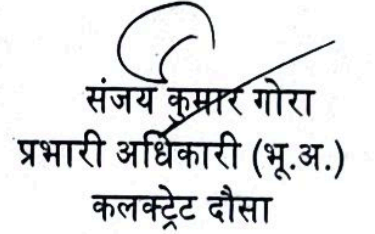 संजय कुमार गोरा
प्रभारी अधिकारी (भू.अ.)
कलक्ट्रेट दौसा